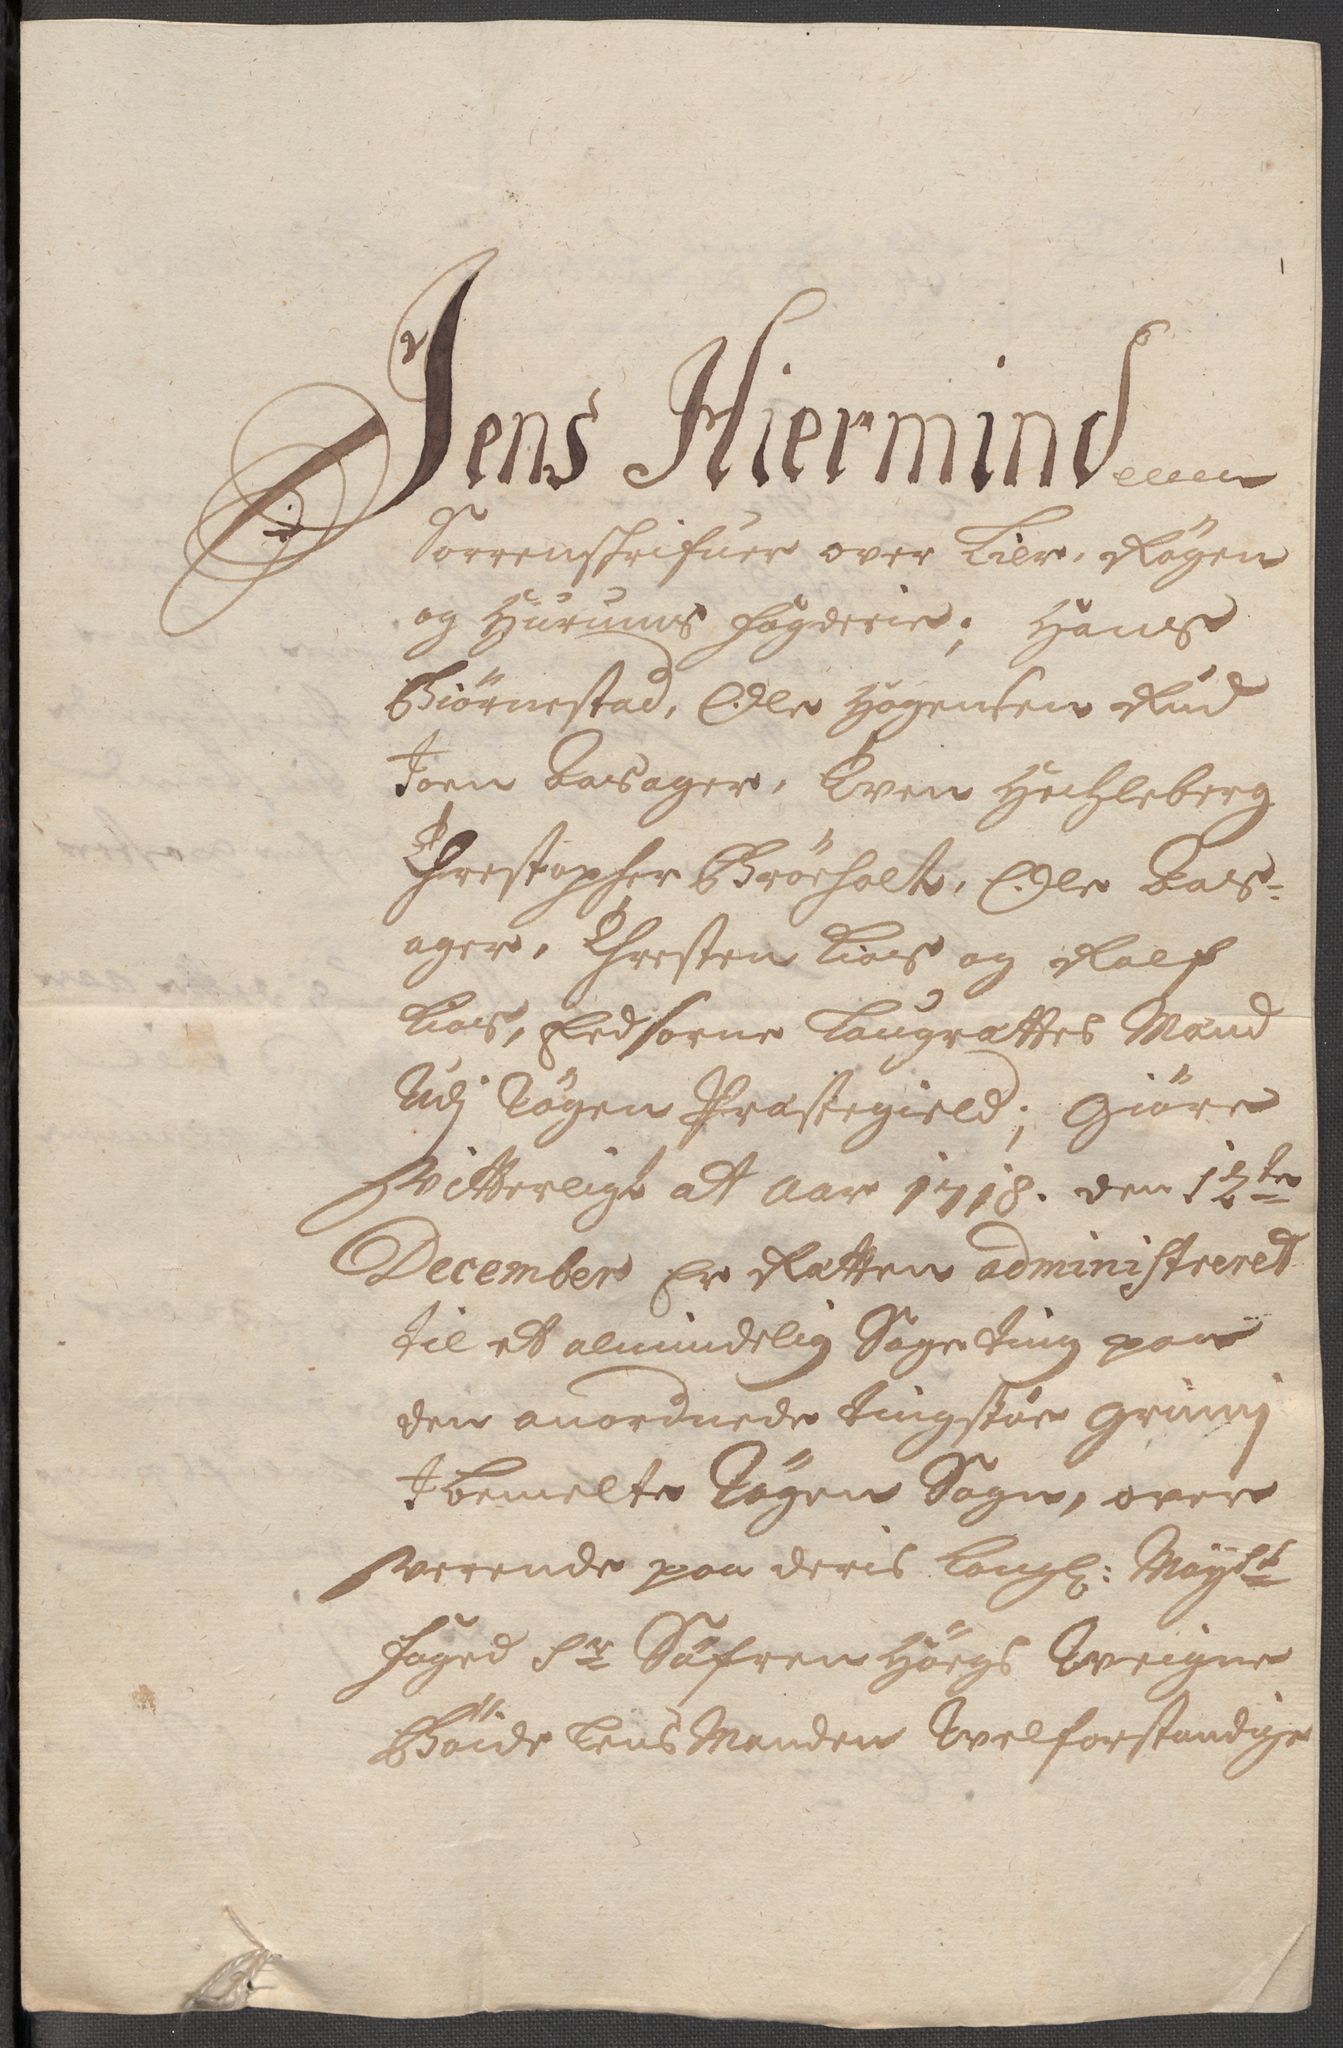 Jens Hiermind
Sorrenskrifuer over Lier, Røgen
og Hurums fogderie; Hans
Biörnestad, Ole Hogensen Rud
Joen Aasager, Even Heckleberg
Christopher Bröholt, Ole Aas-
ager, Christen Lios og Rolf
Lios, Eedsorne Laugrættes Mænd
Udj Røgen Præstegield; Giöre
Witterligt att Aar 1718. den 12te
December Er Rætten administreret
til et almindelig Sageting paa
den anordnede tingstue Grimj
I bemelte Røgen Sogn, over
verende paa deris Kongl: Mayts
foged Sr Söfren Höegs Weigne
Böide Lens Manden Welforstandige